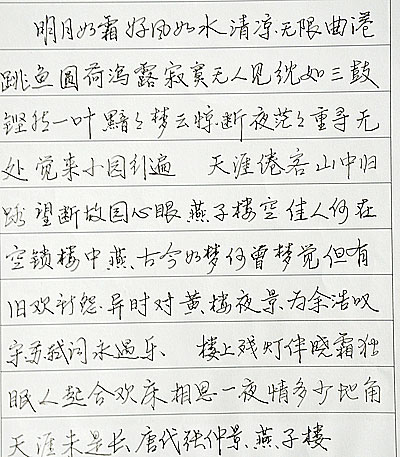 明月如霜好风如水清凉无限曲港
跳鱼圆荷泻露寂寞无人见紞如三鼓
铿然一叶黯黯梦云惊断夜茫茫重寻无
处觉来小园行遍 天涯倦客山中归
路望断故园心眼燕子楼空佳人何在
空锁楼中燕、古今如梦何曾梦觉但有
旧欢新怨、异时对黄楼夜景、为余浩叹
宋苏轼词永遇乐、 楼上残灯伴晓霜独
眠人起合欢床相思一夜情多少地角
天涯未是长、唐代张仲景、燕子楼